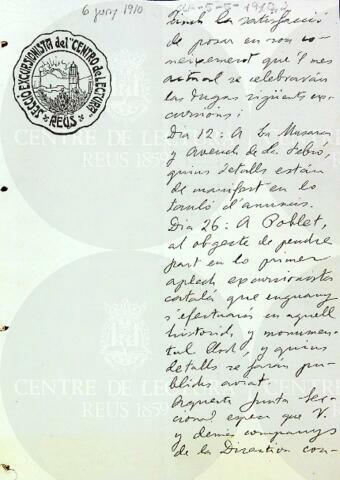 6 juny 1910
SECCIÓ EXCURSIONISTA del "CENTRO de LECTURA"
REUS
Tinch la satisfacció
de posar en son co-
neixement que 'l mes
actual se celebraràn
las dugas següents ex-
cursions:
Dia 12: A La Mussara
y Avench de la Febró,
quins detalls están
de manifest en lo
tauló d'anuncis.
Dia 26: A Poblet,
al obgecte de pendre
part en lo primer
aplech excursionista
català que enguany
s'efectuarà en aquell
historich y monumen-
tal lloch, y quins
detalls se farán pu-
blichs aviat.
Aquesta Junta Sec-
cional espera que V.
y demés companys
de la Directiva con-
CENTRE DE LECTURA
REUS 1859
CENTRE DE LECTURA
REUS 1859
CENTRE DE LECTURA
REUS 1859